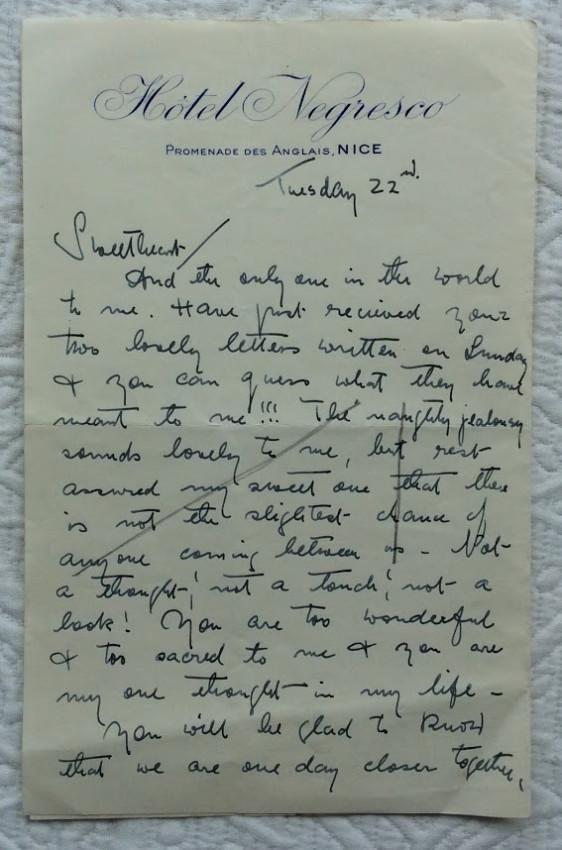 Hôtel Negresco
PROMENADE DES ANGLAIS, NICE
Tuesday 22nd.
Sweetheart
And the only one in the world
to me. Have just recieved your
two lovely letters written on Sunday
& you can guess what they have
meant to me!!! The naughty jealousy
sounds lovely to me, but rest
assured my sweet one that there
is not the slightest chance of
anyone coming between us - Not
a thought! not a touch! not a
look! You are too wonderful
& too sacred to me & you are
my one thought in my life -
You will be glad to know
that we are one day closer together,